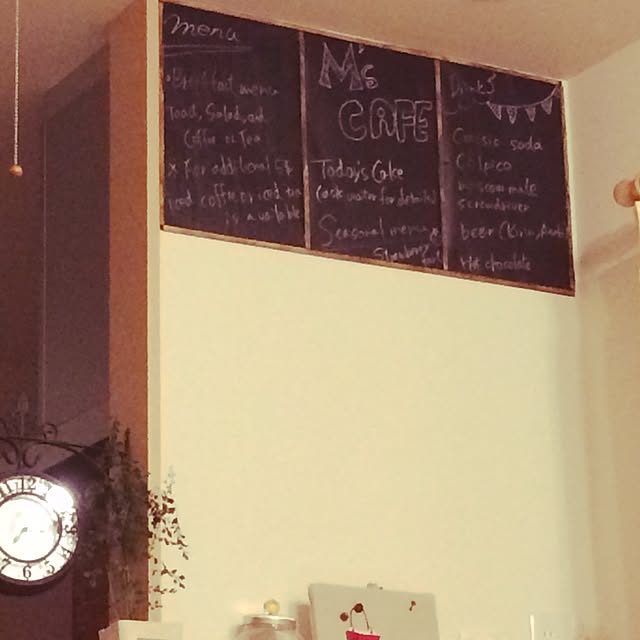 menu
Breakfast menu
Toast, Salad, and
Coffee or Tea
* For additional
iced coffee or iced tea
is available
M's
CAFE
Today's Cake
(ask waiter for details)
Seasonal menu
Strawberry
Drinks
Cassis soda
Calpico
screwdriver
beer (Kirin,
Hot chocolate
12